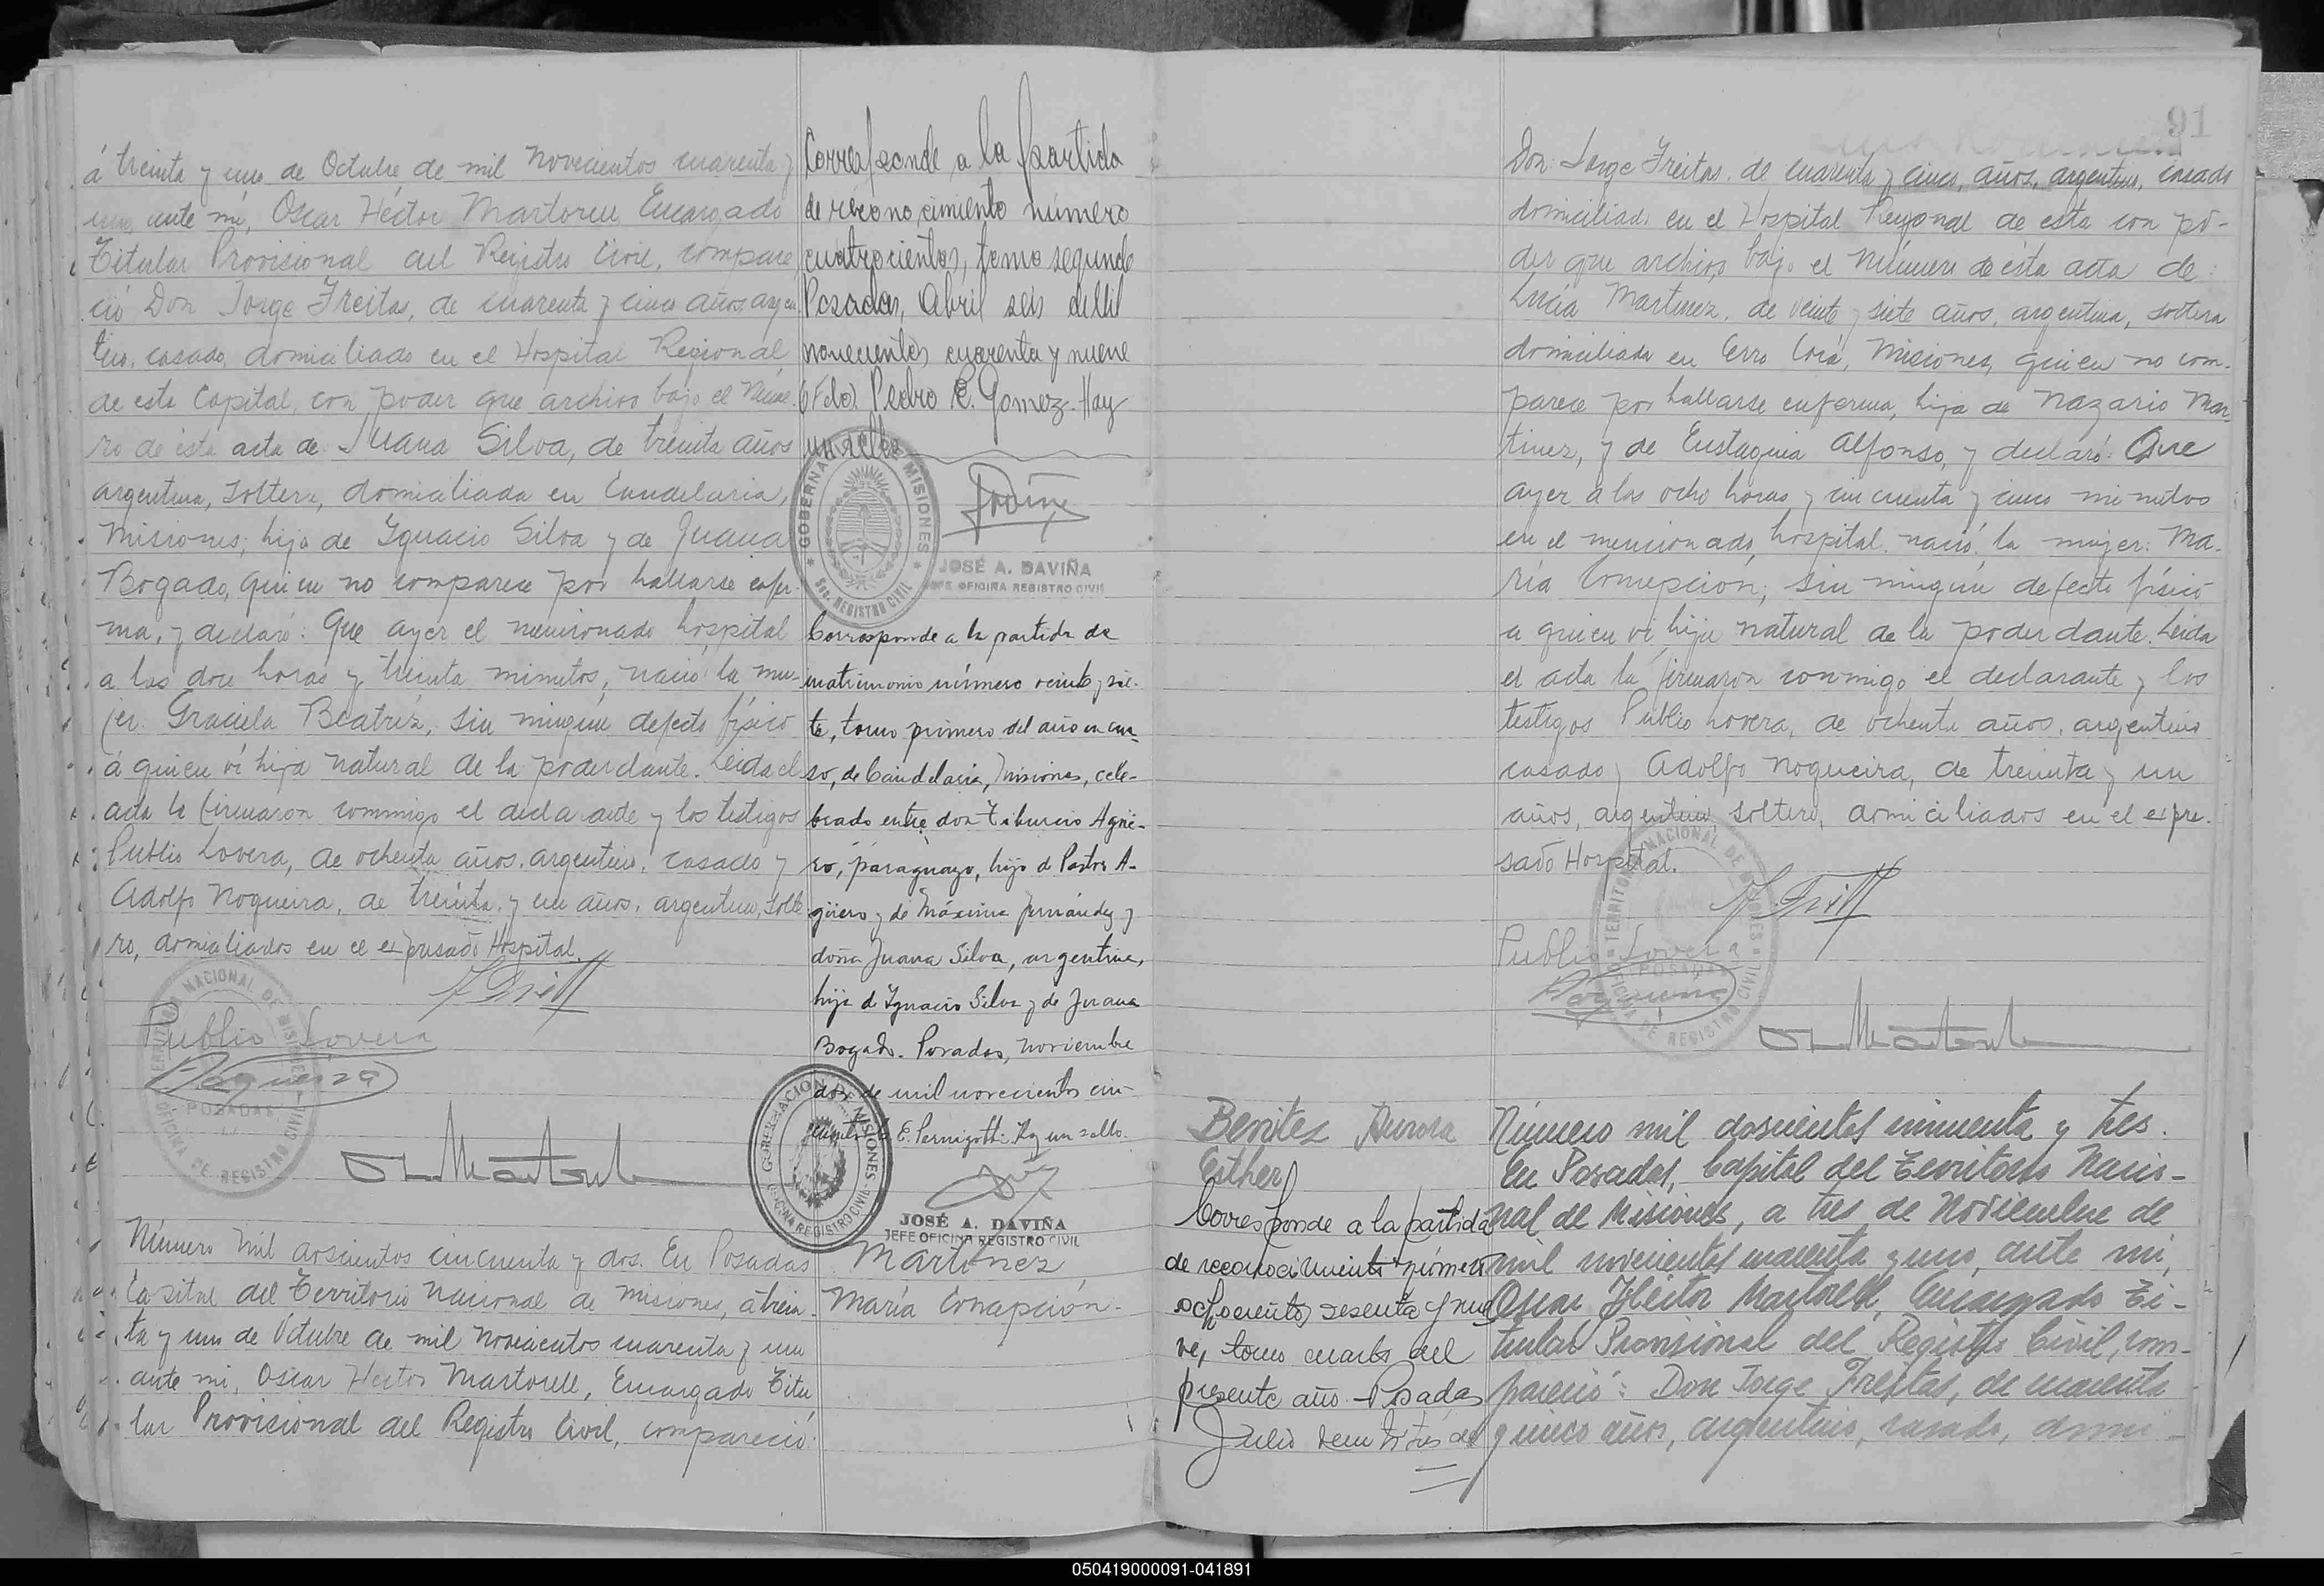 á treinta y uno de Octubre de mil novecientos cuarenta y
uno, ante mí, Oscar Héctor Martorell, Encargado
Titular Provisional del Registro Civil, compare
ció Don Jorge Freitas, de cuarenta y cinco años, argen
tino, casado, domiciliado en el Hospital Regional
de esta Capital, con poder que archivo bajo el Núme-
ro de ésta acta de Juana Silva, de treinta años
argentina, soltera, domiciliada en Candelaria,
Misiones, hija de Ignacio Silva y de Juana
Bogado, quien no comparece por hallarse enfer-
ma, y declaró: Que ayer el mencionado hospital
a las doce horas y treinta minutos, nació la mu-
jer. Graciela Beatríz, sin ningún defecto físico
á quien ví hija natural de la poderdante. Leida el
acta la firmaron conmigo el declarante y los testigos
Publio Lovera, de ochenta años, argentino, casado y
Adolfo Nogueira, de treinta y un años, argentino, solte
ro, domiciliados en el expresado Hospital.
TERRITORIO NACIONAL DE MISIONES
POSADAS
OFICINA DE REGISTRO CIVIL
Publio Lovera
Nogueira
Número mil doscientos cincuenta y dos. En Posadas
Capital del Territorio Nacional de Misiones, á trein-
ta y uno de Octubre de mil novecientos cuarenta y uno
ante mi, Oscar Hector Martorell, Encargado Titu
lar Provisional del Registro Civil, compareció:
Corresponde a la partida
de reconocimiento número
cuatrocientos, tomo segundo
Posadas, Abril seis de Mil
novecientos cuarenta y nueve
(Fdo). Pedro E. Gomez. Hay
un sello
GOBERNACION DE MISIONES
SEC. REGISTRO CIVIL
JOSÉ A. DAVIÑA
JEFE OFICINA REGISTRO CIVIL
Corresponde a la partida de
matrimonio número veinte y sie-
te, tomo primero del año en cur-
so, de Candelaria, Misiones, cele-
brado entre don Tiburcio Agüe-
ro, paraguayo, hijo de Pastor A-
güero y de Máxima Fernández y
doña Juana Silva, argentina,
hija de Ignacio Silva y de Juana
Bogado. Posadas, noviembre
dos de mil novecientos cin-
cuenta E. Pernigotti. Hay un sello.
GOBERNACION DE MISIONES
OFICINA REGISTRO CIVIL
JOSÉ A. DAVIÑA
JEFE OFICINA REGISTRO CIVIL
Martinez
María Concepción.
91
Don: Jorge Freitas, de cuarenta y cinco, años, argentino, casado
domiciliado en el Hospital Regional de esta con po-
der que archivo bajo el Número de ésta acta de
Lucía Martinez, de veinte y siete años, argentina, soltera
domiciliada en Cerro Corá, Misiones, quien no com-
parece por hallarse enferma, hija de Nazario Mar-
tinez, y de Eustaquia Alfonso, y declaró: Que
ayer á las ocho horas y cincuenta y cinco minutos
en el mencionado, hospital, nació la mujer: Ma-
ría Concepción; sin ningún defecto físico
a quien ví, hija natural de la poderdante. Leida
el acta la firmaron conmigo el declarante y los
testigos Publio Lovera, de ochenta años, argentino
casado y Adolfo Nogueira, de treinta y un
años, argentino, soltero, domiciliados en el expre-
sado Hospital.
TERRITORIO NACIONAL DE MISIONES
POSADAS
OFICINA DE REGISTRO CIVIL
Publio Lovera
Nogueira
Benitez Aurora
Esther
Corresponde a la partida
de reconocimiento número
ochocientos sesenta y nue
ve, tomo cuarto del
presente año. Posadas
Julio veintitrés de
Número mil doscientos cincuenta y tres.
En Posadas, Capital del Territorio Nacio-
nal de Misiones, a tres de Noviembre de
mil novecientos cuarenta y uno, ante mi,
Oscar Héctor Martorell, Encargado Ti-
tular Provisional del Registro Civil, com-
pareció: Don Jorge Freitas, de cuarenta
y cinco años, argentino, casado, domi-
050419000091-041891